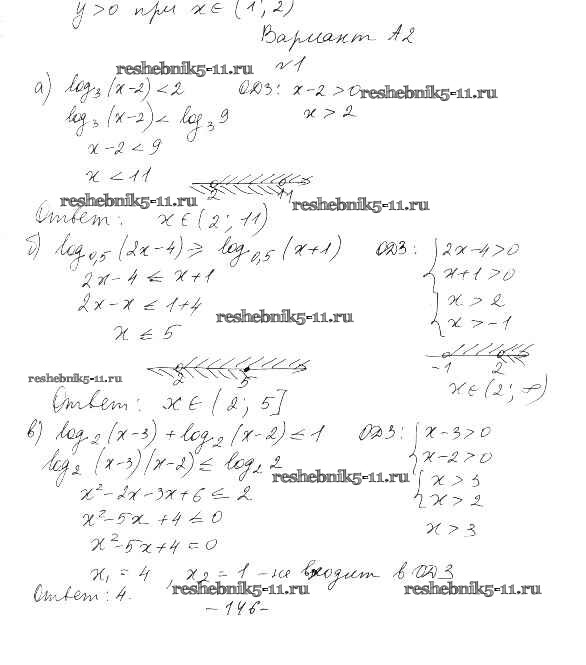 y>0 при x∈(1; 2)
Вариант А2
№1
reshebnik5-11.ru
а) log₃(x-2)<2 ОДЗ: x-2>0
reshebnik5-11.ru
log₃(x-2)<log₃9 x>2
x-2<9
x<11
2 11
reshebnik5-11.ru reshebnik5-11.ru
Ответ: x∈(2; 11)
б) log₀,₅(2x-4)≥log₀,₅(x+1) ОДЗ: { 2x-4>0
2x-4≤x+1 x+1>0
2x-x≤1+4 { x>2
reshebnik5-11.ru
x≤5 x>-1
2 5 -1 2
reshebnik5-11.ru
Ответ: x∈(2; 5] x∈(2; ∞)
в) log₂(x-3)+log₂(x-2)≤1 ОДЗ: { x-3>0
x-2>0
log₂(x-3)(x-2)≤log₂2
reshebnik5-11.ru
x²-2x-3x+6≤2 { x>3
x>2
x²-5x+4≤0 x>3
x²-5x+4=0
x₁=4, x₂=1 -не входит в ОДЗ
Ответ: 4.
reshebnik5-11.ru reshebnik5-11.ru
-146-